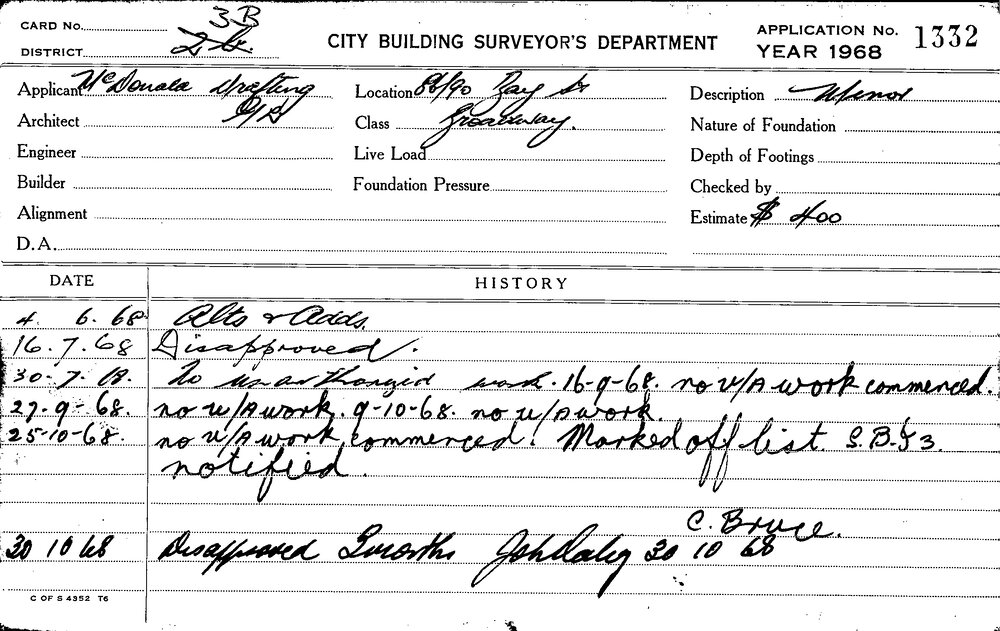 CARD No. 3B
DISTRICT
CITY BUILDING SURVEYOR'S DEPARTMENT
APPLICATION No. 1332
YEAR 1968
Applicant McDonald Drafting
Location 86/90 Bay St
Broadway.
Description Minor
Architect
Class
Nature of Foundation
Engineer
Live Load
Depth of Footings
Builder
Foundation Pressure
Checked by
Alignment
Estimate $ 400
D.A.
DATE HISTORY
4. 6. 68 Alts & Adds.
16. 7. 68 Disapproved.
30-7-68. No unauthorized work. 16-9-68. no u/A work commenced.
27-9-68. no u/A work. 9-10-68. no u/A work.
25-10-68. no u/A work commenced. Marked off list. S.B.I 3.
notified.
C. Bruce.
30 10 68 Disapproved 3 months 30 10 68
C OF S 4352 T6